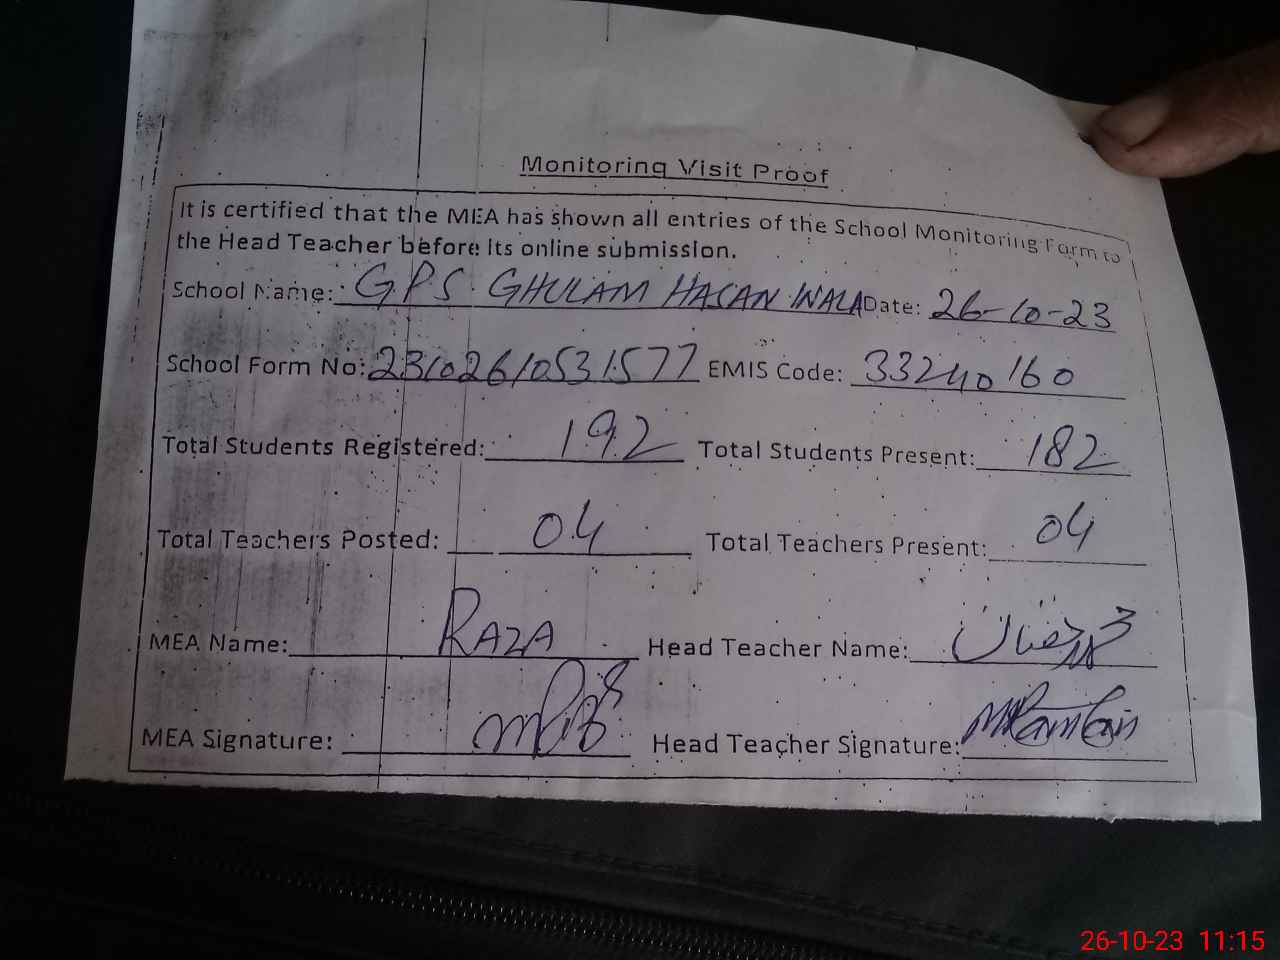 Monitoring Visit Proof
It is certified that the MEA has shown all entries of the School Monitoring Form to
the Head Teacher before its online submission.
School Name: GPS GHULAM HASAN WALA Date: 26-10-23
School Form No: 23102610531577 EMIS Code: 33240160
Total Students Registered: 192 Total Students Present: 182
Total Teachers Posted: 04 Total Teachers Present: 04
MEA Name: RAZA Head Teacher Name: محمد رمضان
MEA Signature: Head Teacher Signature:
26-10-23 11:15